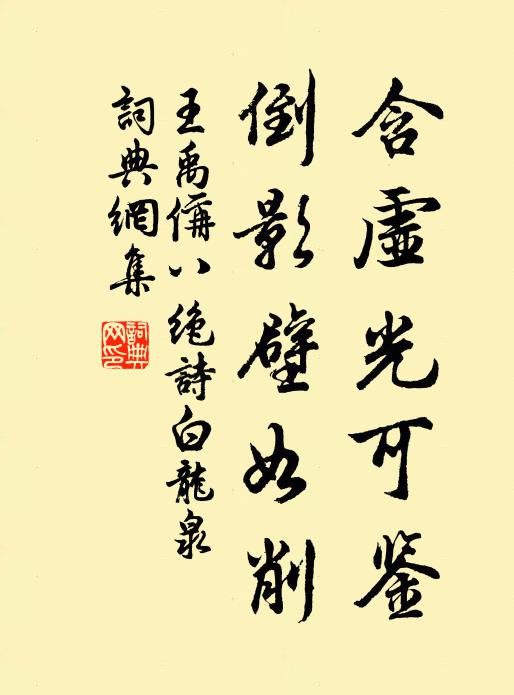 含虛光可鉴
倒影壁如削
王禹偁八绝詩白龍泉
詞典網集
詞典网印